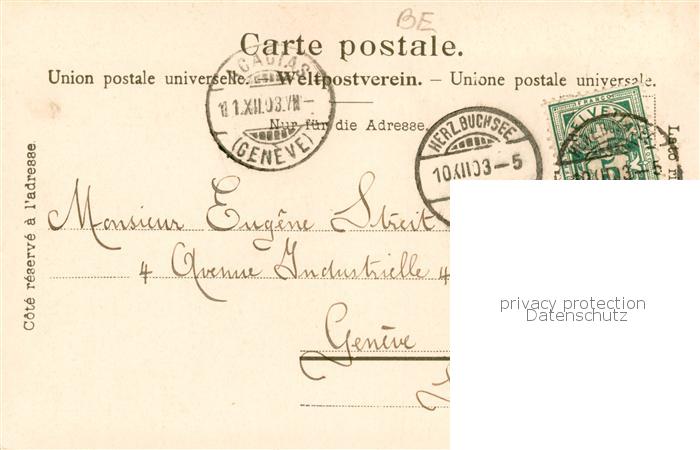 BE
Carte postale.
Union postale universelle. – Weltpostverein. – Unione postale universale.
Nur für die Adresse.
ACACIAS
11.XII.03.VII–
(GENÈVE)
HERZ.BUCHSEE
10.XII.03–5
FRANCO
HELVETIA
5
Côté réservé à l'adresse.
Monsieur Eugène Streit
4 Avenue Industrielle 4
Genève
privacy protection
Datenschutz